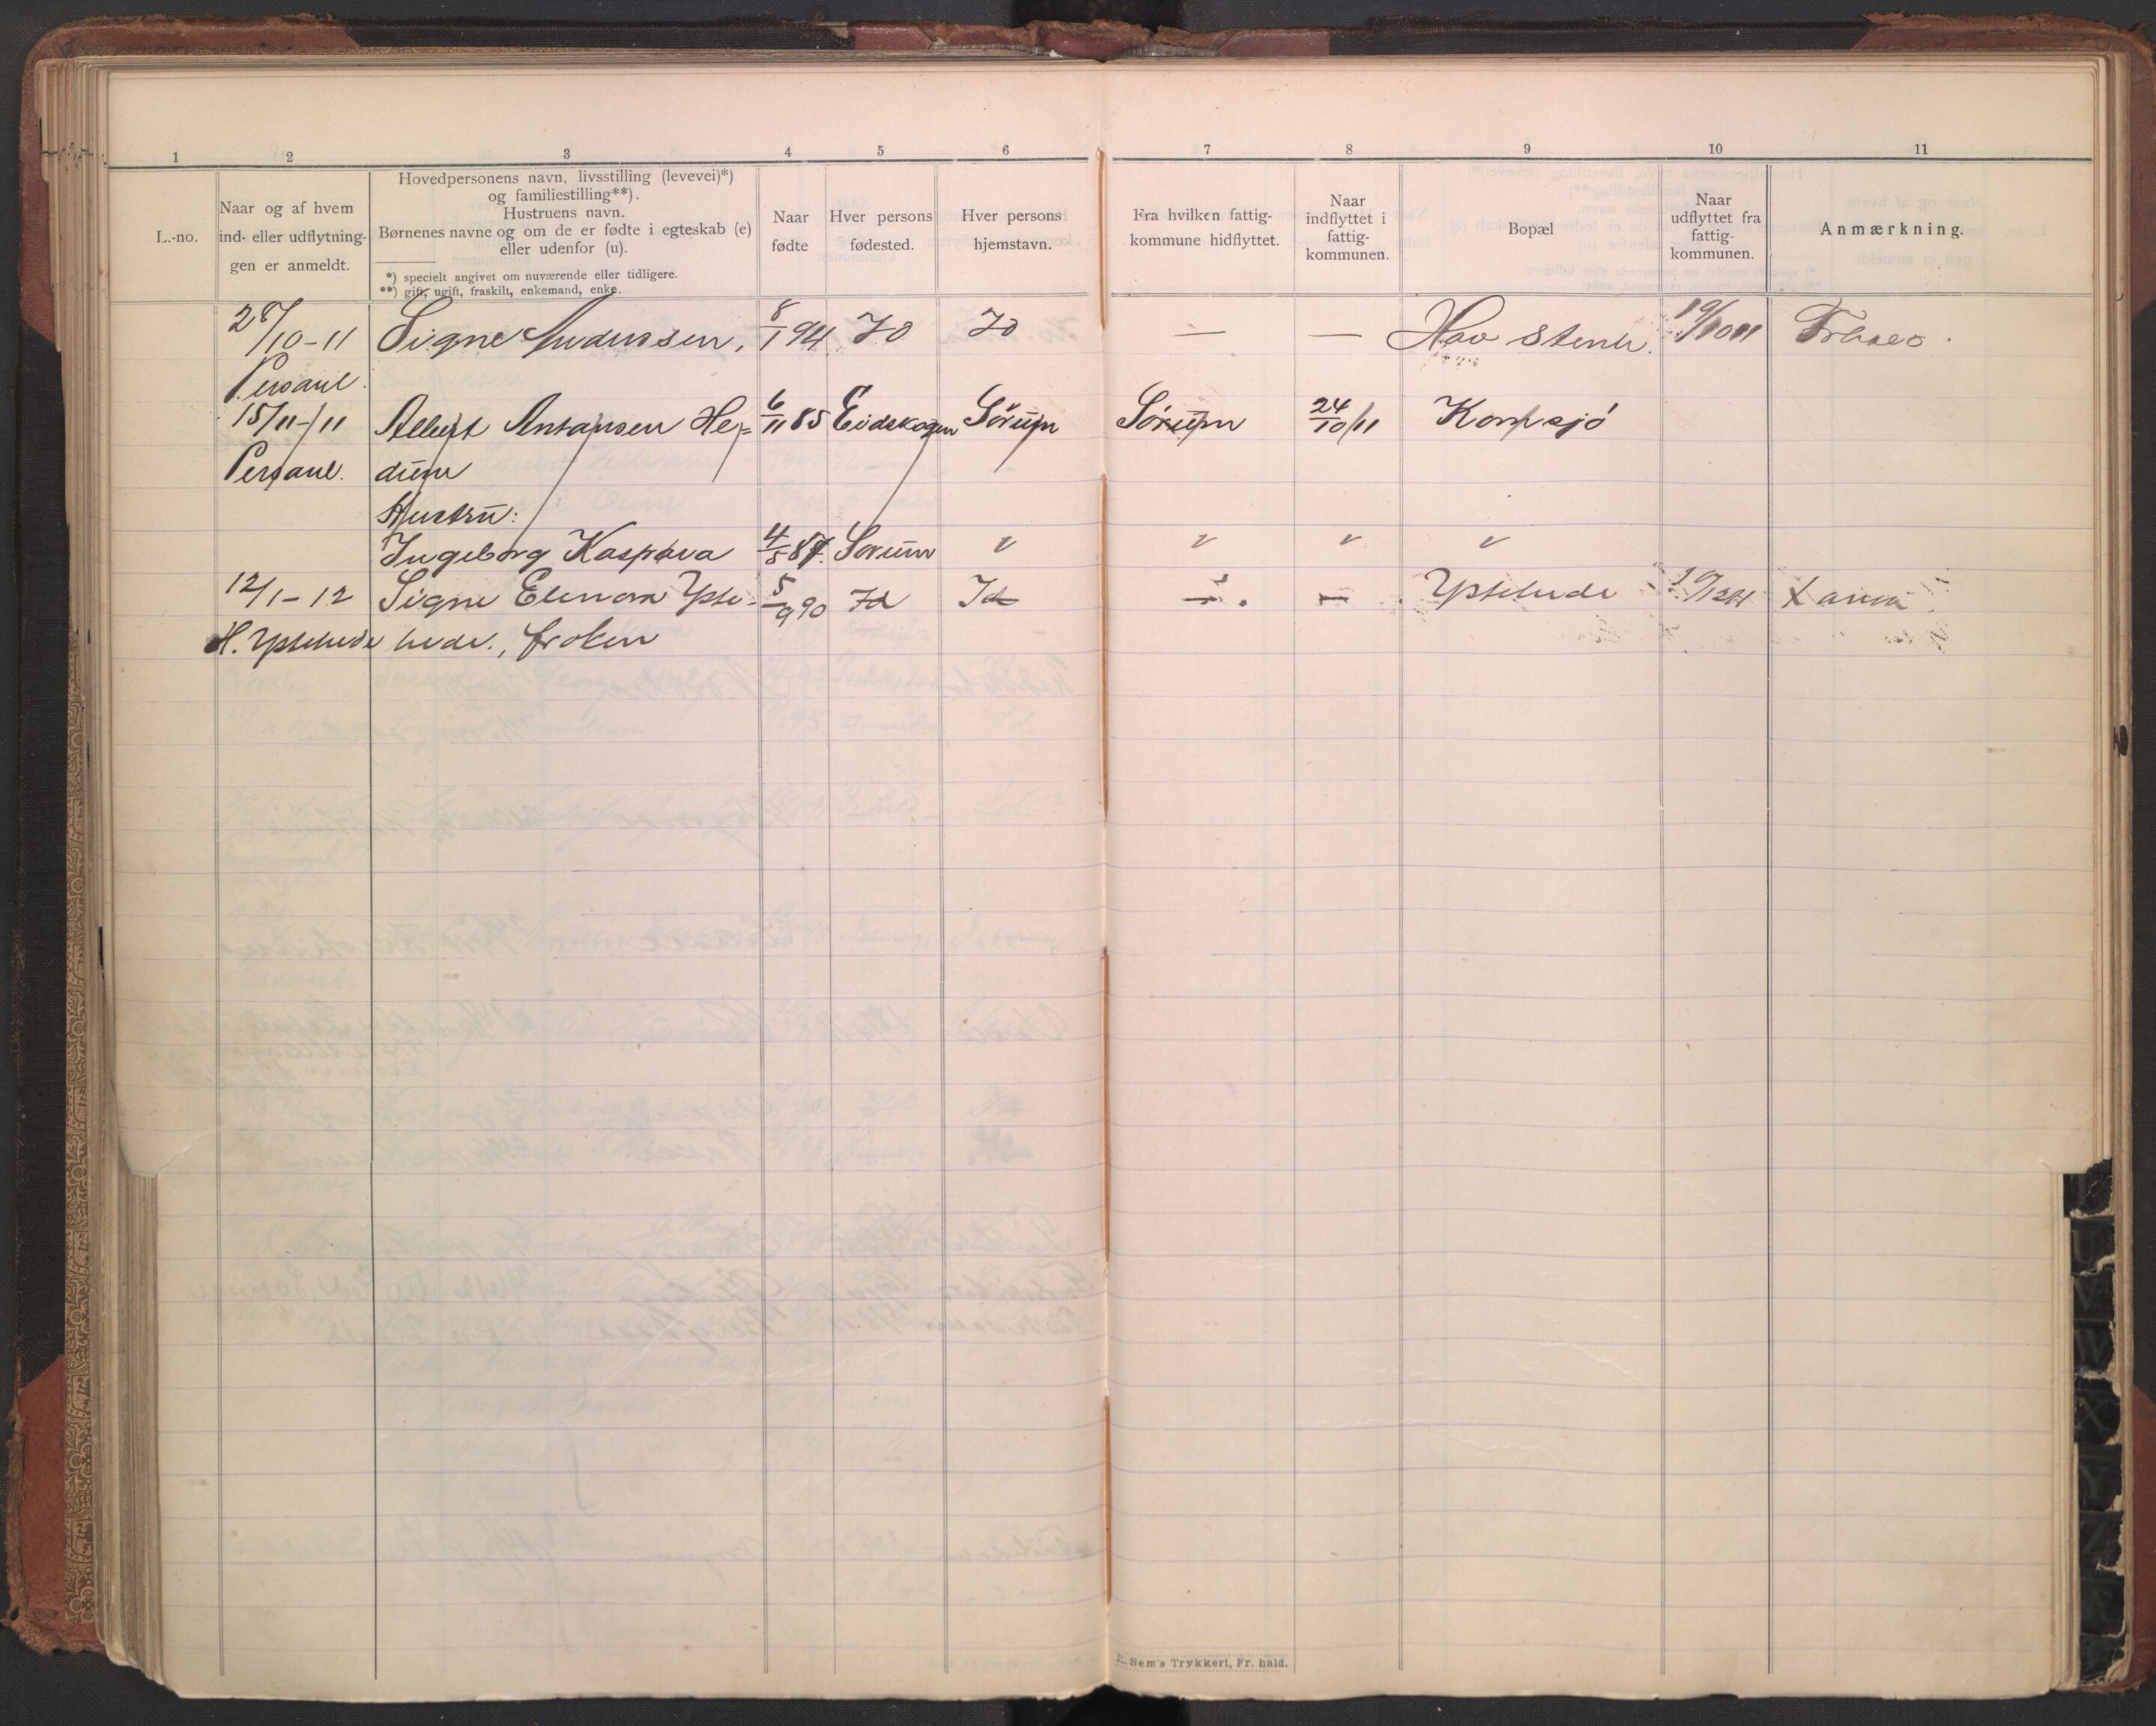 1 2 3 4 5 6 7 8 9 10 11
L.-no.
Naar og af hvem
ind- eller udflytnin-
gen er anmeldt.
Hovedpersonens navn, livsstilling (levevei)*)
og familiestilling**).
Hustruens navn.
Børnenes navne og om de er fødte i egteskab (e)
eller udenfor (u).
*) specielt angivet om nuværende eller tidligere.
**) gift, ugift, fraskilt, enkemand, enke.
Naar
fødte
Hver persons
fødested.
Hver persons
hjemstavn.
Fra hvilken fattig-
kommune hidflyttet.
Naar
indflyttet i
fattig-
kommunen.
Bopæl
Naar
udflyttet fra
fattig-
kommunen.
Anmærkning.
28/10-11 Signe Anderssen, 8/1 94 Id Id — — 19/10 11
Personl.
15/11-11 Albert Antonsen He= 6/11 85 Eidskogen Sörum Sörum 24/10/11 Kornsjö
Personl. dum
Hustru:
Ingeborg 4/5 87. Sorum " " " "
12/1-12 Signe Elenora Yste- 5/9 90 Id Id — — Ystehede
H. Ystehede hede., frøken
E. Sem's Trykkeri, Fr. hald.